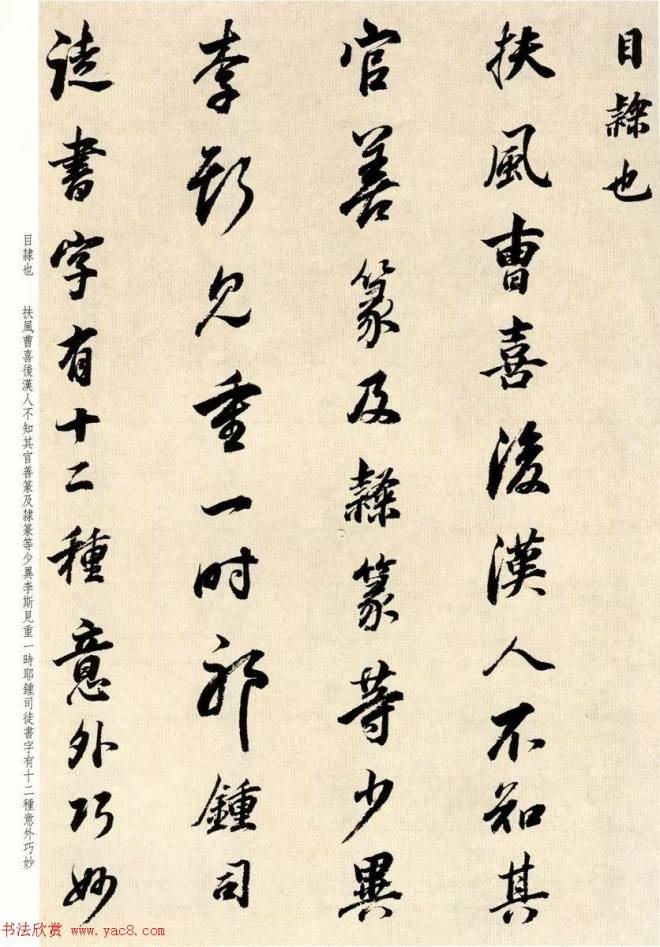 目隸也
扶風曹喜後漢人不知其
官善篆及隸篆等少異
李斯見重一時耶鍾司
徒書字有十二種意外巧妙
目隸也　扶風曹喜後漢人不知其官善篆及隸篆等少異李斯見重一時耶鍾司徒書字有十二種意外巧妙
书法欣赏 www.yac8.com